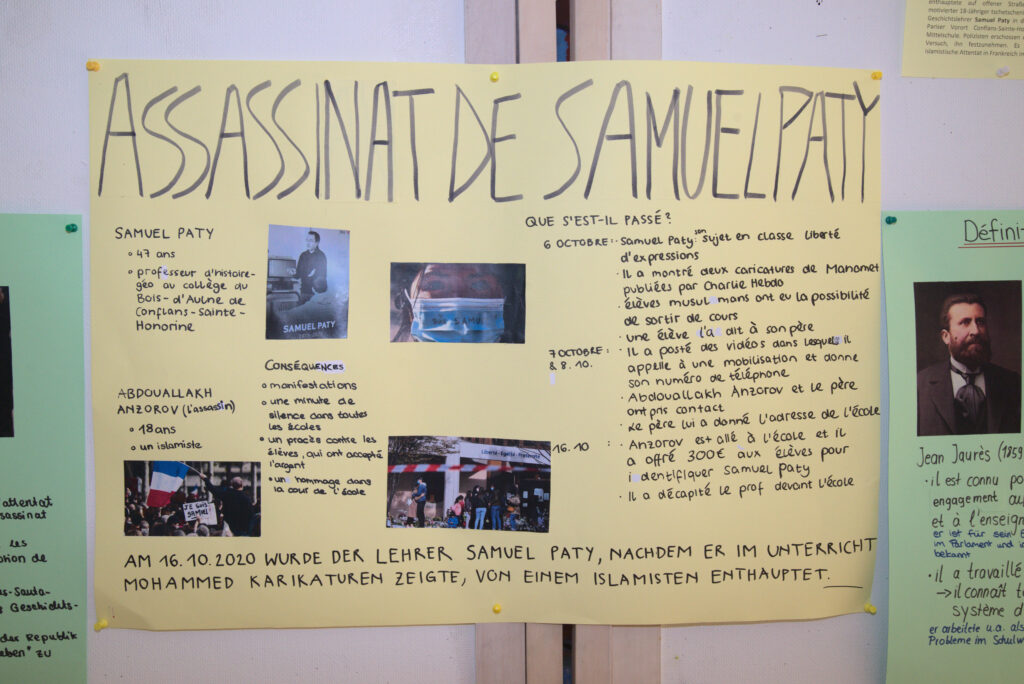 ASSASSINAT DE SAMUEL PATY
SAMUEL PATY
47 ans
professeur d'histoire-
géo au collège du
Bois-d'Aulne de
Conflans-Sainte-
Honorine
SAMUEL PATY
ABDOUALLAKH
ANZOROV (l'assassin)
18 ans
un islamiste
JE SUIS
SAMUEL
CONSÉQUENCES
manifestations
une minute de
silence dans toutes
les écoles
un procès contre les
élèves, qui ont accepté
l'argent
un hommage dans
la cour de l'école
Liberté - Égalité - Fraternité
QUE S'EST-IL PASSÉ?
6 OCTOBRE: · Samuel Paty: son sujet en classe liberté
d'expressions
· Il a montré deux caricatures de Mahomet
publiées par Charlie Hebdo
· élèves musulmans ont eu la possibilité
de sortir de cours
· une élève l'a dit à son père
7 OCTOBRE: · Il a posté des vidéos dans lesquels il
& 8.10. appelle à une mobilisation et donne
son numéro de téléphone
· Abdouallakh Anzorov et le père
ont pris contact
· Le père lui a donné l'adresse de l'école
16.10 : · Anzorov est allé à l'école et il
a offré 300€ aux élèves pour
identifiquer Samuel Paty
· Il a décapité le prof devant l'école
AM 16.10.2020 WURDE DER LEHRER SAMUEL PATY, NACHDEM ER IM UNTERRICHT
MOHAMMED KARIKATUREN ZEIGTE, VON EINEM ISLAMISTEN ENTHAUPTET.
enthauptete auf offener
motivierter 18-Jähriger
Geschichtslehrer Samuel Paty in
Pariser Vorort
Mittelschule. Polizisten erschossen
Versuch, ihn festzunehmen. Es
islamistische Attentat in Frankreich
attentat
les
de
Geschichts-
der Republik
zu
Jean Jaurès (1859
· il est connu
engagement
et à
er ist für sein
im Parlament und
bekannt
· il a travaillé
→ il connaît
système
er arbeitete u.a. als
Probleme im